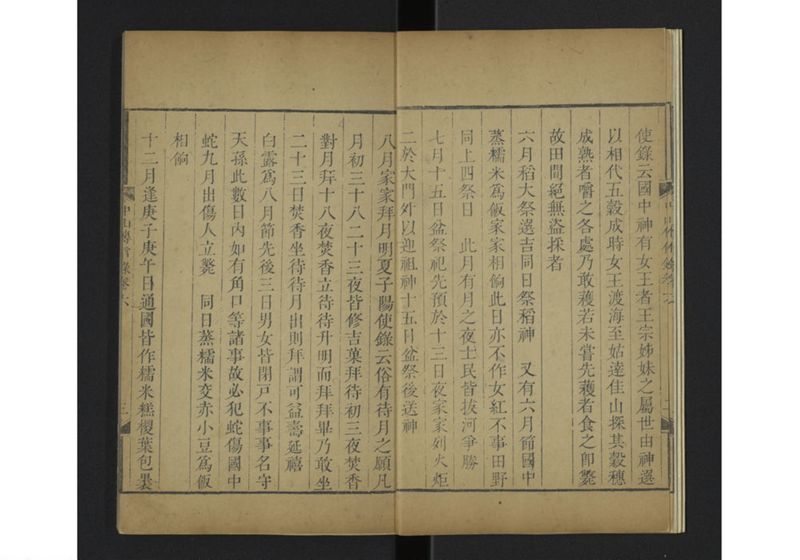 使錄云國中神有女王者王宗姊妹之屬世由神選
以相代五穀成時女王渡海至姑達佳山採其穀穗
成熟者嚼之各處乃敢穫若未嘗先穫者食之卽斃
故田間絕無盜採者
六月稻大祭選吉同日祭稻神 又有六月節國中
蒸糯米爲飯家家相餉此日亦不作女紅不事田野
同上四祭日 此月有月之夜士民皆拔河爭勝
七月十五日盆祭祀先預於十三日夜家家列火炬
二於大門外以迎祖神十五日盆祭後送神
八月家家拜月明夏子陽使錄云俗有待月之願凡
月初三十八二十三夜皆修吉菓拜待初三夜焚香
對月拜十八夜焚香立待待升明而拜拜畢乃敢坐
二十三日焚香坐待待月出則拜謂可益壽延禧
白露爲八月節先後三日男女皆閉戸不事事名守
天孫此數日內如有角口等諸事故必犯蛇傷國中
蛇九月出傷人立斃 同日蒸糯米交赤小豆爲飯
相餉
十二月逢庚子庚午日通國皆作糯米糕椶葉包裹
中山傳信錄卷六
三